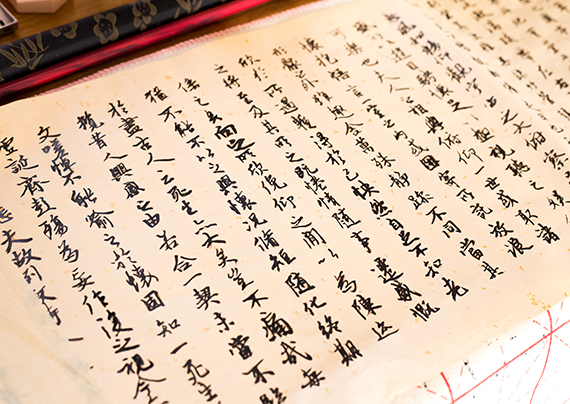 風和暢仰觀宇宙之大俯察
遊目騁懷足以極視聽之娛
可樂也夫人之相與俯仰一世或取諸
懷抱悟言一室之內或因寄所託放浪
形骸之外雖趣舍萬殊靜躁不同當其
欣於所遇暫得於己快然自足不知老
之將至及其所之既倦情隨事遷感慨
係之矣向之所欣俛仰之間以為陳迹
猶不能不以之興懷況脩短隨化終期
於盡古人云死生亦大矣豈不痛哉每
攬昔人興感之由若合一契未嘗不臨
文嗟悼不能喻之於懷固知一死生
虛誕齊彭殤為妄作後之視今
悲夫故列敘時